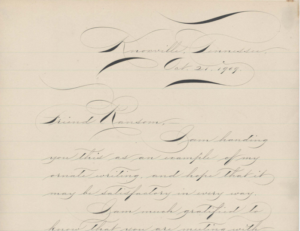 Knoxville, Tennessee
Oct. 21, 1909.
Friend Ransom:
I am handing
you this as an example of my
ornate writing and hope that it
may be satisfactory in every way.
I am much gratified to
know that you are